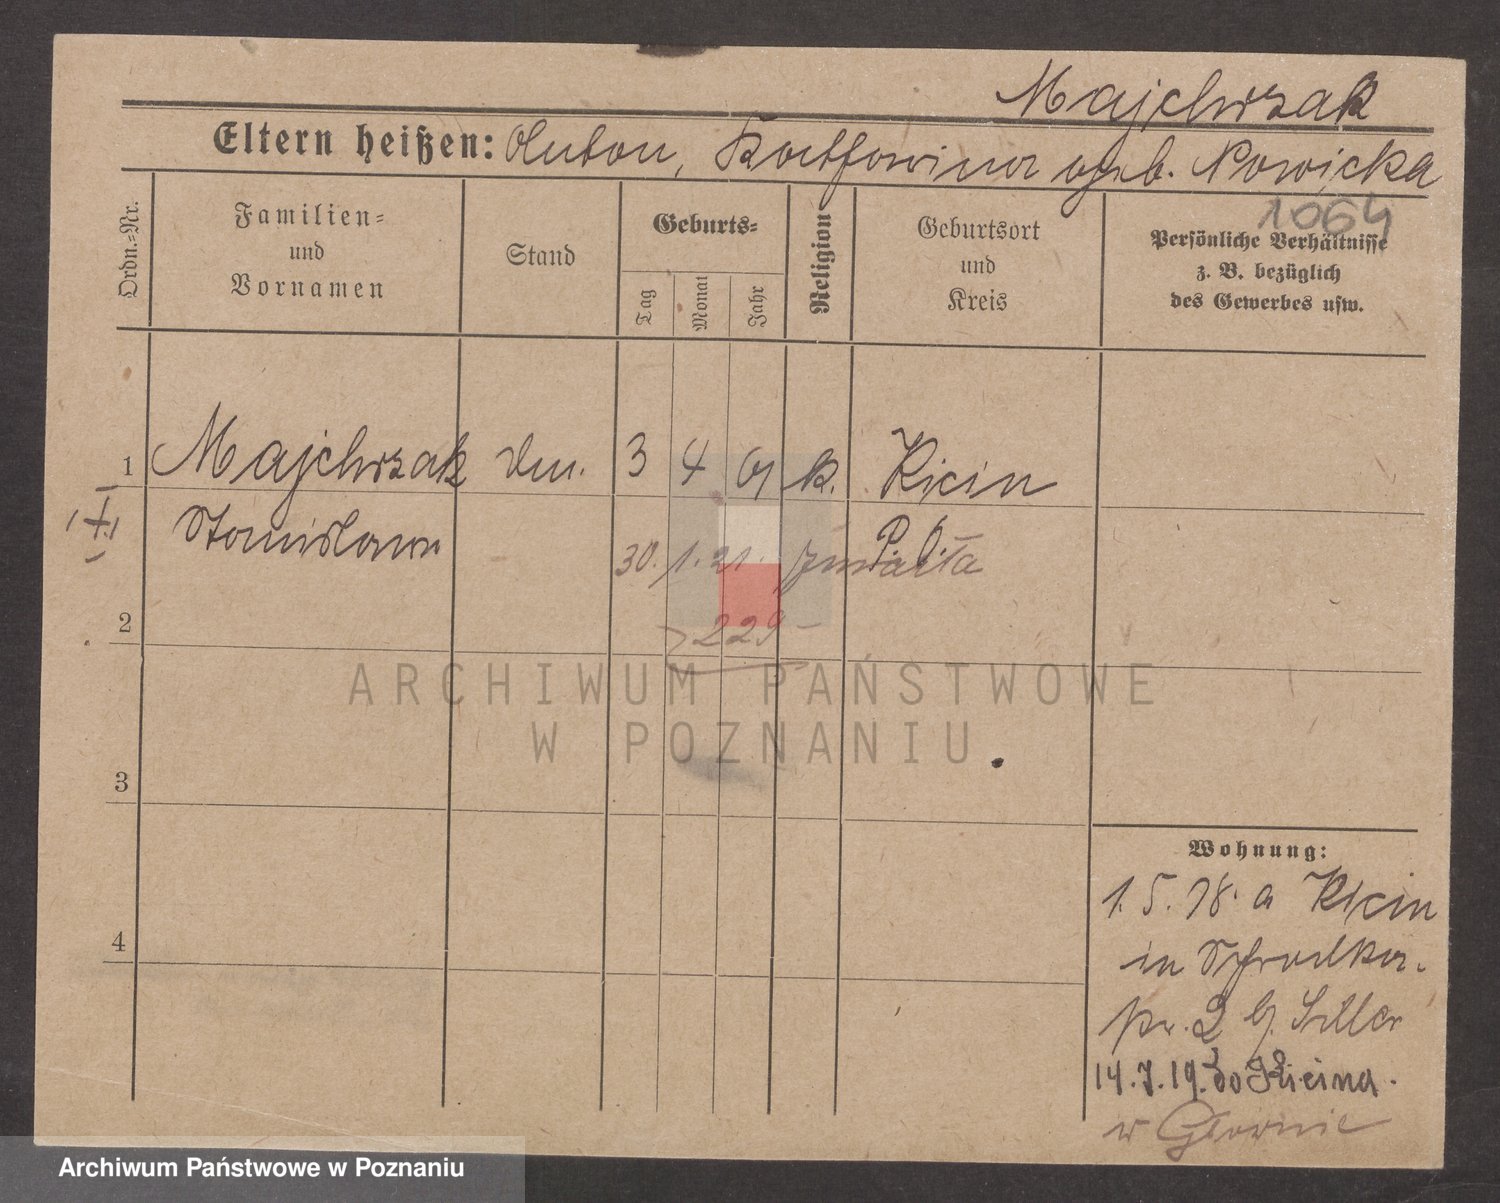 Majchrzak
Eltern heißen: Anton, Katharina geb. Nowicka
1064
Ordn.=Nr.
Familien=
und
Vornamen
Stand
Geburts=
Tag
Monat
Jahr
Religion
Geburtsort
und
Kreis
Persönliche Verhältnisse
z. B. bezüglich
des Gewerbes usw.
1 Majchrzak 3 4 k. Kicin
Stanislawa P. O.
30. 1. 21. zmarła
2
229
ARCHIWUM PAŃSTWOWE
W POZNANIU
3
4
Wohnung:
1. 5. 18. a Kicin
in Schrodka
pr. 2 b.
14. 7. 19. do Kicina.
w Głównie
Archiwum Państwowe w Poznaniu